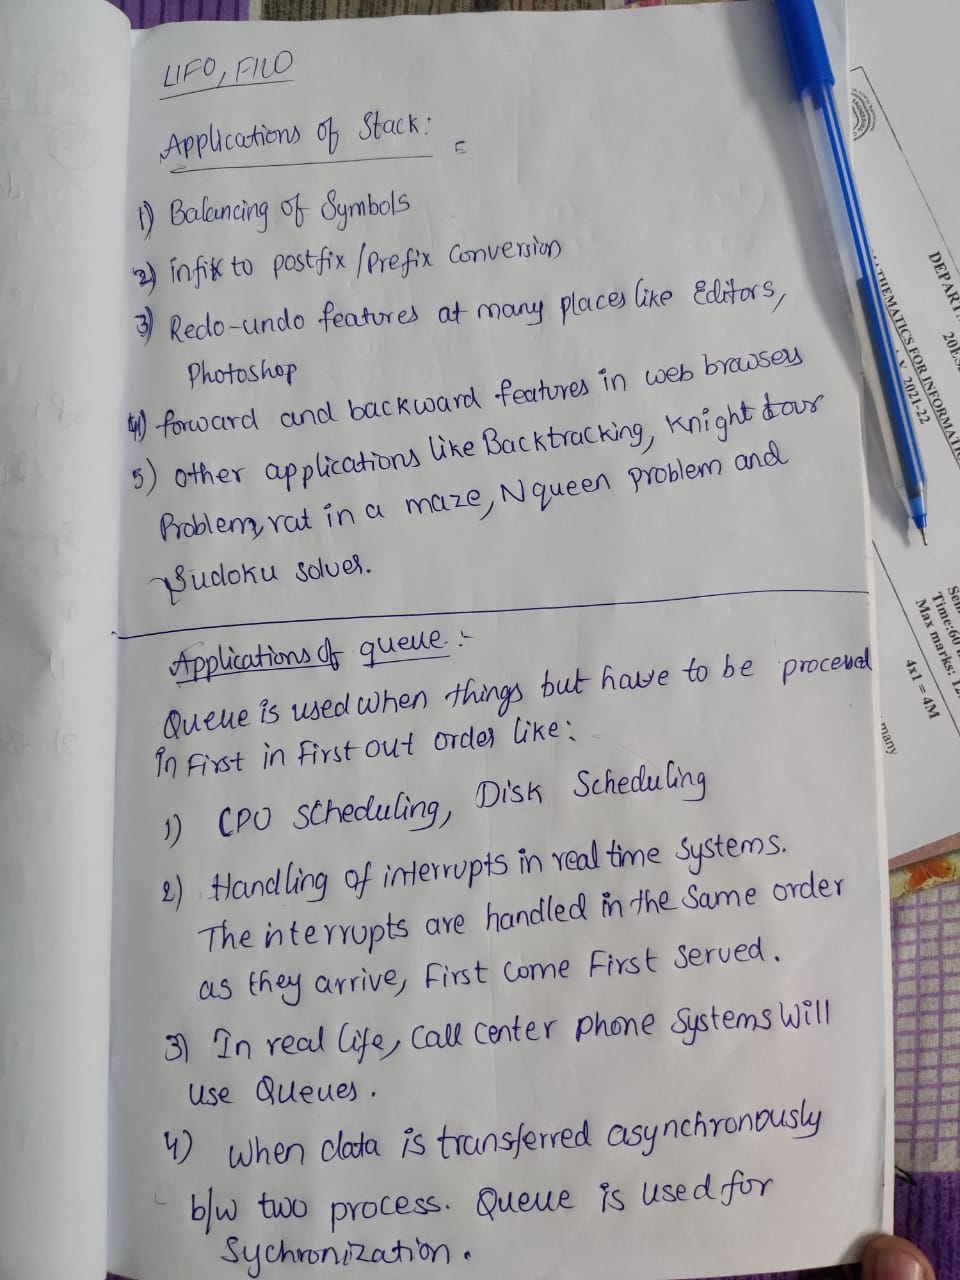 LIFO, FILO
Applications of Stack:
1) Balancing of Symbols
2) infix to postfix /Prefix Conversion
3) Redo-undo features at many places like Editors,
Photoshop
4) forward and backward features in web browsers
5) other applications like Backtracking, Knight tour
Problem, rat in a maze, N queen problem and
Sudoku solver.
Applications of queue :-
Queue is used when things but have to be processed
in First in First out order like:
1) CPU scheduling, Disk Scheduling
2) Handling of interrupts in real time systems.
The interrupts are handled in the Same order
as they arrive, First come First Served.
3) In real life, Call Center phone Systems Will
use Queues.
4) When data is transferred asynchronously
b/w two process. Queue is used for
Sychronization.
DEPAR
20ES
MATHEMATICS FOR INFORMATI
2021-22
Sem
Time:60
Max marks: 12
4x1 = 4M
many